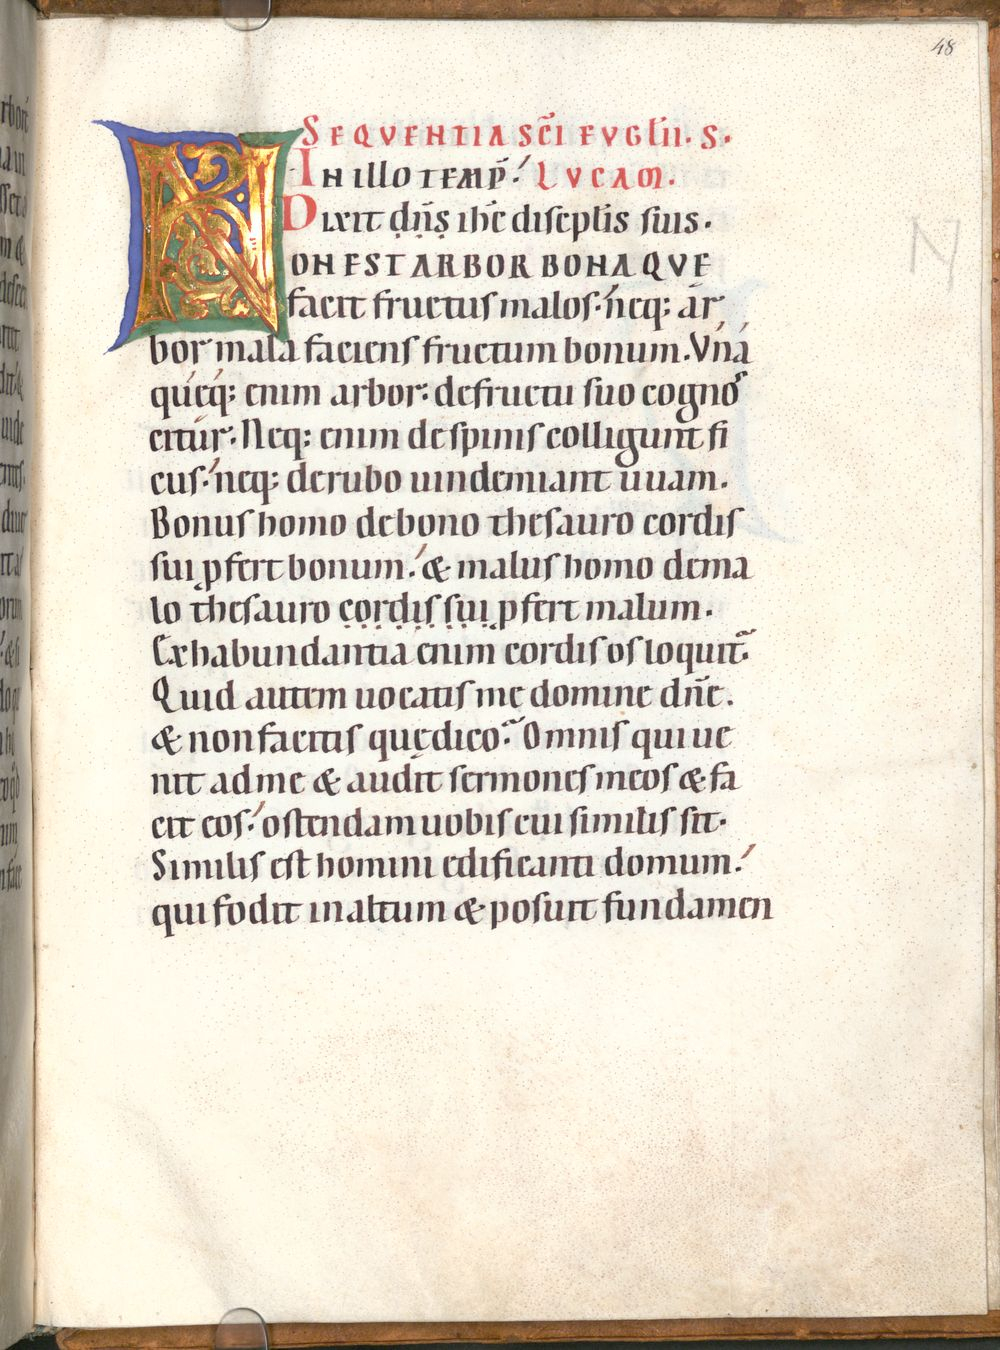 48
SEQVENTIA SC̄I EVGL̄II. S.
IN ILLO TEMP̄. LVCAM.
Dixit dn̄s ih̄c discipl̄is suis.
NON EST ARBOR BONA QVE
facit fructus malos. neq; ar
bor mala faciens fructum bonum. Vna
queq; enim arbor. de fructu suo cogno
citur. Neq; enim de spinis colligunt fi
cus. neq; de rubo uindemiant uuam.
Bonus homo de bono thesauro cordis
sui ꝓfert bonum. & malus homo de ma
lo thesauro cordis sui ꝓfert malum.
Ex habundantia enim cordis os loquit᷑.
Quid autem uocatis me domine dn̄e.
& non facitis quę dico. Omnis qui ue
nit ad me & audit sermones meos & fa
cit eos. ostendam uobis cui similis sit.
Similis est homini edificanti domum.
qui fodit in altum & posuit fundamen
N